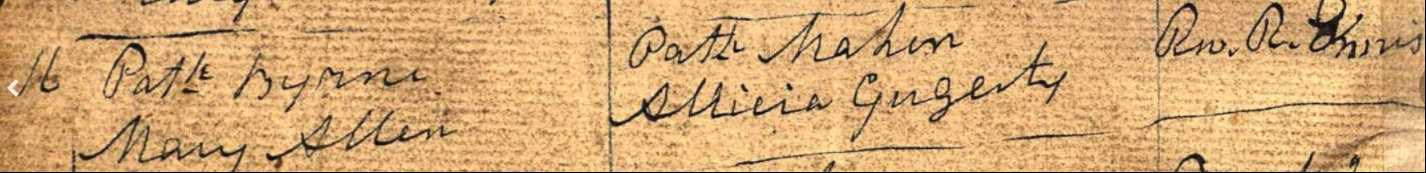 16 Patk Byrne
Mary Allen
Patk Mahon
Allicia Gugerty
Rev. R. Ennis